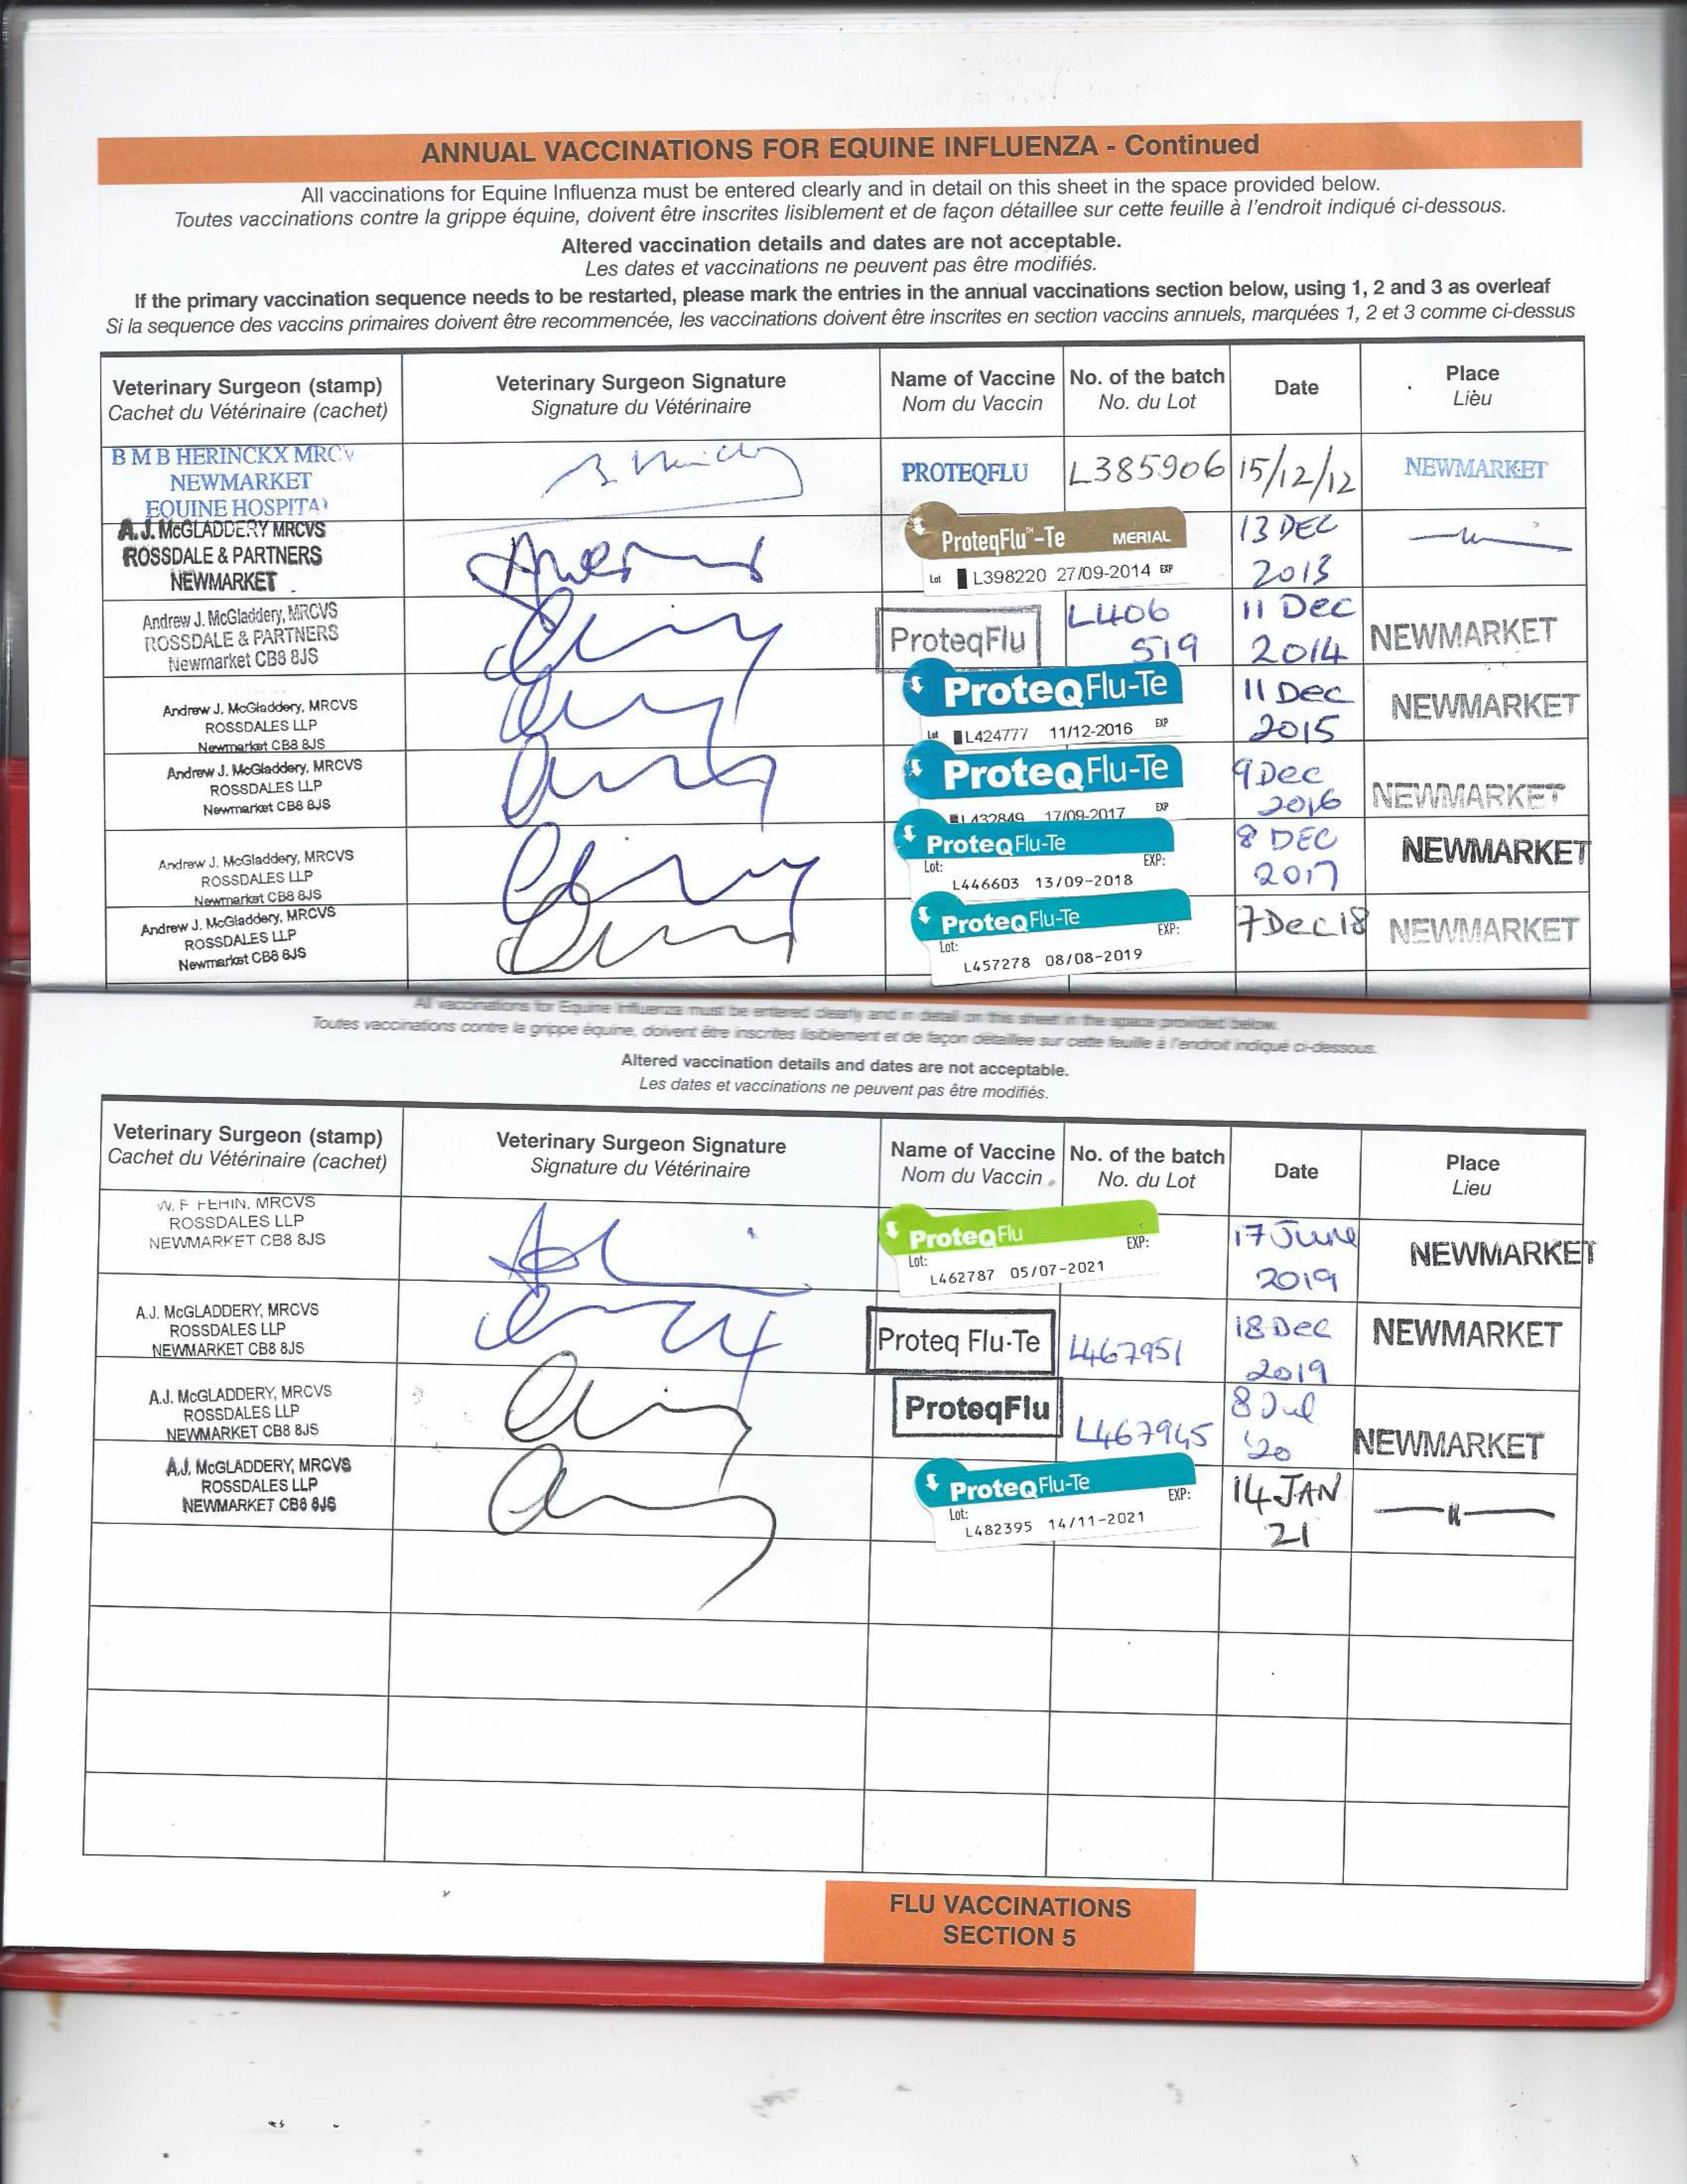 ANNUAL VACCINATIONS FOR EQUINE INFLUENZA - Continued
All vaccinations for Equine Influenza must be entered clearly and in detail on this sheet in the space provided below.
Toutes vaccinations contre la grippe équine, doivent être inscrites lisiblement et de façon détaillee sur cette feuille à l'endroit indiqué ci-dessous.
Altered vaccination details and dates are not acceptable.
Les dates et vaccinations ne peuvent pas être modifiés.
If the primary vaccination sequence needs to be restarted, please mark the entries in the annual vaccinations section below, using 1, 2 and 3 as overleaf
Si la sequence des vaccins primaires doivent être recommencée, les vaccinations doivent être inscrites en section vaccins annuels, marquées 1, 2 et 3 comme ci-dessus
Veterinary Surgeon (stamp) Veterinary Surgeon Signature Name of Vaccine No. of the batch Date Place
Cachet du Vétérinaire (cachet) Signature du Vétérinaire Nom du Vaccin No. du Lot Lièu
B M B HERINCKX MRCV
NEWMARKET PROTEQFLU L385906 15/12/12 NEWMARKET
EQUINE HOSPITA
A.J. McGLADDERY MRCVS 13 DEC
ROSSDALE & PARTNERS ProteqFlu™-Te MERIAL
NEWMARKET Lot L398220 27/09-2014 EXP 2013
Andrew J. McGladdery, MRCVS L406 11 Dec
ROSSDALE & PARTNERS ProteqFlu NEWMARKET
Newmarket CB8 8JS 519 2014
Andrew J. McGladdery, MRCVS ProteqFlu-Te 11 Dec NEWMARKET
ROSSDALES LLP
Newmarket CB8 8JS Lot L424777 11/12-2016 EXP 2015
Andrew J. McGladdery, MRCVS ProteqFlu-Te 9 Dec
ROSSDALES LLP NEWMARKET
Newmarket CB8 8JS L432849 17/09-2017 EXP 2016
Andrew J. McGladdery, MRCVS ProteqFlu-Te 8 DEC NEWMARKET
ROSSDALES LLP Lot: EXP:
Newmarket CB8 8JS L446603 13/09-2018 2017
Andrew J. McGladdery, MRCVS ProteqFlu-Te 7 Dec 18 NEWMARKET
ROSSDALES LLP Lot: EXP:
Newmarket CB8 8JS L457278 08/08-2019
All vaccinations for Equine Influenza must be entered clearly and in detail on this sheet in the space provided below.
Toutes vaccinations contre la grippe équine, doivent être inscrites lisiblement et de façon détaillee sur cette feuille à l'endroit indiqué ci-dessous.
Altered vaccination details and dates are not acceptable.
Les dates et vaccinations ne peuvent pas être modifiés.
Veterinary Surgeon (stamp) Veterinary Surgeon Signature Name of Vaccine No. of the batch Date Place
Cachet du Vétérinaire (cachet) Signature du Vétérinaire Nom du Vaccin No. du Lot Lieu
W. F FEHIN, MRCVS
ROSSDALES LLP ProteqFlu 17 June NEWMARKET
NEWMARKET CB8 8JS Lot: EXP:
L462787 05/07-2021 2019
A.J. McGLADDERY, MRCVS 18 Dec
ROSSDALES LLP Proteq Flu-Te L467951 NEWMARKET
NEWMARKET CB8 8JS 2019
A.J. McGLADDERY, MRCVS ProteqFlu 8 Jul
ROSSDALES LLP L467945 NEWMARKET
NEWMARKET CB8 8JS '20
A.J. McGLADDERY, MRCVS ProteqFlu-Te 14 JAN
ROSSDALES LLP Lot: EXP: —"—
NEWMARKET CB8 8JS L482395 14/11-2021 21
FLU VACCINATIONS
SECTION 5